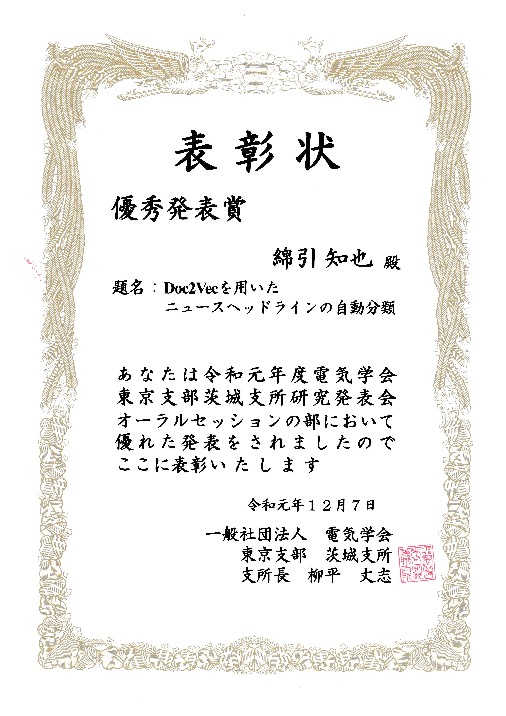 表彰状
優秀発表賞
綿引知也 殿
題名：Doc2Vecを用いた
ニュースヘッドラインの自動分類
あなたは令和元年度電気学会
東京支部茨城支所研究発表会
オーラルセッションの部において
優れた発表をされましたので
ここに表彰いたします
令和元年１２月７日
一般社団法人　電気学会
東京支部　茨城支所
支所長　柳平　丈志